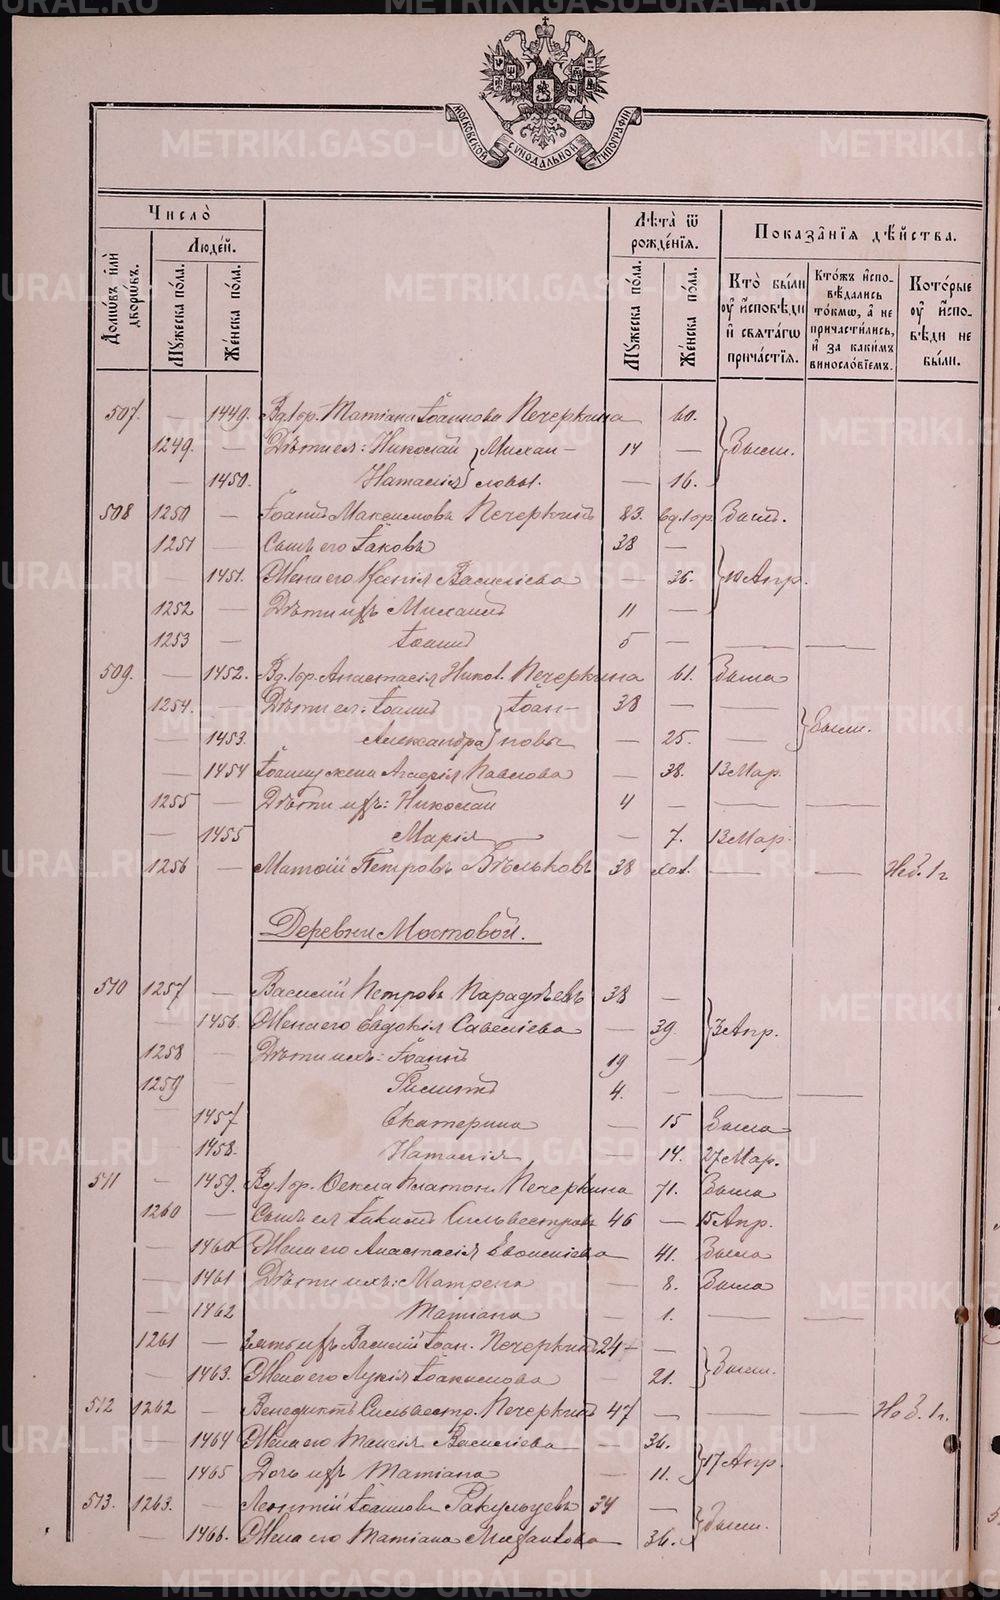 МОСКОВСКОЙ СѴНОДАЛЬНОЙ ТИПОГРАФІИ
Число̀
Людéй.
Домѡвъ и҆лѝ дворѡвъ.
Мꙋ́жеска по́ла.
Же́нска по́ла.
Лѣ́та ѿ рожде́нїѧ.
Мꙋ́жеска по́ла.
Же́нска по́ла.
Показа̑нїѧ дѣ́йства.
Кто̀ бы́ли ᲂу҆ и҆сповѣди и҆ свѧта́гѡ прича́стїѧ.
Кто́жъ и҆спо-вѣ́дались то́кмѡ, а҆ не причасти́лись, и҆ за каки́мъ виносло́вїемъ.
Кото́рые ᲂу҆ и҆спо-вѣди не бы́ли.
507. — 1449. Вд. Гор. Татіана Іоаннова Печеркина 60.
1249. — Дѣти ея: Николай } Михаи- 14 — } Были.
— 1450. Наталія } ловы. — 16.
508 1250 — Іоаннъ Максимовъ Печеркинъ 83. вд. Гор. Былъ.
1251 — Сынъ его Іаковъ 38 —
— 1451. Жена его Ксенія Васильева — 36. } 10 Апр.
1252 — Дѣти ихъ Михаилъ 11 —
1253 — Іоаннъ 5 — — —
509. — 1452. Вд. Гор. Анастасія Никол. Печеркина 61. Была
1254. — Дѣти ея: Іоаннъ } Іоан- 38 — —
— 1453. Александра } новы — 25. — } Были.
— 1454 Іоанну жена Агафія Павлова — 38. 13 Мар.
1255 — Дѣти ихъ: Николай 4 — — —
— 1455 Марія — 7. 13 Мар.
1256 — Матѳій Петровъ Бѣльковъ 38 хол. — — Не б. 1 г.
Деревни Мостовой.
510 1257 — Василій Петровъ Парадѣевъ 38 —
— 1456. Жена его Евдокія Савельева — 39 } 3 Апр.
1258 — Дѣти ихъ: Іоаннъ 19 —
1259 — Филиппъ 4. — — —
— 1457 Екатерина — 15 Была
— 1458. Наталія — 14. 27 Мар.
511 — 1459. Вд. Гор. Ѳекла Платон. Печеркина 71. Была
1260 — Сынъ ея Іакимъ Сильвестровъ 46 — 15 Апр.
— 1460 Жена его Анастасія Евѳиміева — 41. Была
— 1461 Дѣти ихъ: Матрена — 8. Была
— 1462 Татіана — 1. — —
1261 — Зять ихъ Василій Іоан. Печеркинъ 24 —
— 1463. Жена его Лукія Іоакимова — 21. } Были.
512 1262 — Венедиктъ Сильвестр. Печеркинъ 47 — — — Не б. 1 г.
— 1464 Жена его Таисія Васильева — 36.
— 1465 Дочь ихъ Татіана — 11. } 17 Апр.
513. 1263. — Леонтій Іоанновъ Ракульцевъ 34 —
— 1466. Жена его Татіана — 36. } Были.
METRIKI.GASO-URAL.RU